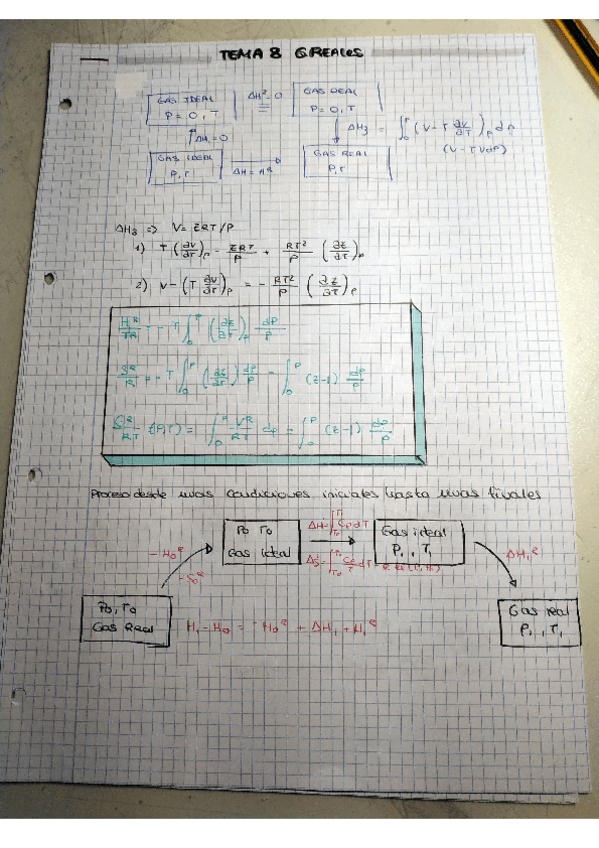 TEMA 8 G.REALES
GAS IDEAL
P = 0, T
ΔH² = 0
GAS IDEAL
P = 0, T
ΔH₁ = 0
ΔH₃ = ∫₀ᴾ (V - T ∂V/∂T)ₚ dP
(V - TVdP)
GAS IDEAL
P, T
ΔH = Hᴿ
GAS REAL
P, T
ΔH₃ => V = ZRT/P
1) T (∂V/∂T)ₚ = ZRT/P + RT²/P (∂Z/∂T)ₚ
2) V - (T ∂V/∂T)ₚ = - RT²/P (∂Z/∂T)ₚ
Hᴿ/TR = - T ∫₀ᴾ (∂Z/∂T)ₚ dP/P
Sᴿ/R = - T ∫₀ᴾ (∂Z/∂T)ₚ dP/P - ∫₀ᴾ (Z-1) dP/P
Gᴿ/RT (P,T) = ∫₀ᴾ Vᴿ/RT dP = ∫₀ᴾ (Z-1) dP/P
Proceso desde unas condiciones iniciales hasta unas finales
P₀ T₀
Gas ideal
ΔH = ∫ Cp dT
Gas ideal
P₁, T₁
- H₀ᴿ
- S₀ᴿ
ΔH₁ᴿ
P₀, T₀
Gas Real
H₁ - H₀ = - H₀ᴿ + ΔH₁ + H₁ᴿ
Gas real
P₁, T₁